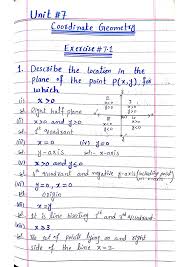 Unit #7
Coordinate Geometry
Exercise #7.1
1. Describe the location in the
plane of the point P(x,y) for
which
(i) x>0
Sol: Right half plane
(ii) x>0 and y>0
Sol: 1st Quadrant
(iii) x=0 (iv) y=0
Sol: y-axis Sol: x-axis
(v) x>0 and y≤0
Sol: 4th Quadrant and negative y-axis
(vi) y=0, x=0
Sol: origin
(vii) x=y
Sol: It is line bisecting 1st and 3rd Quadrant
(viii) x≥3
Sol: The set of points lying on and right
side of the line x=3